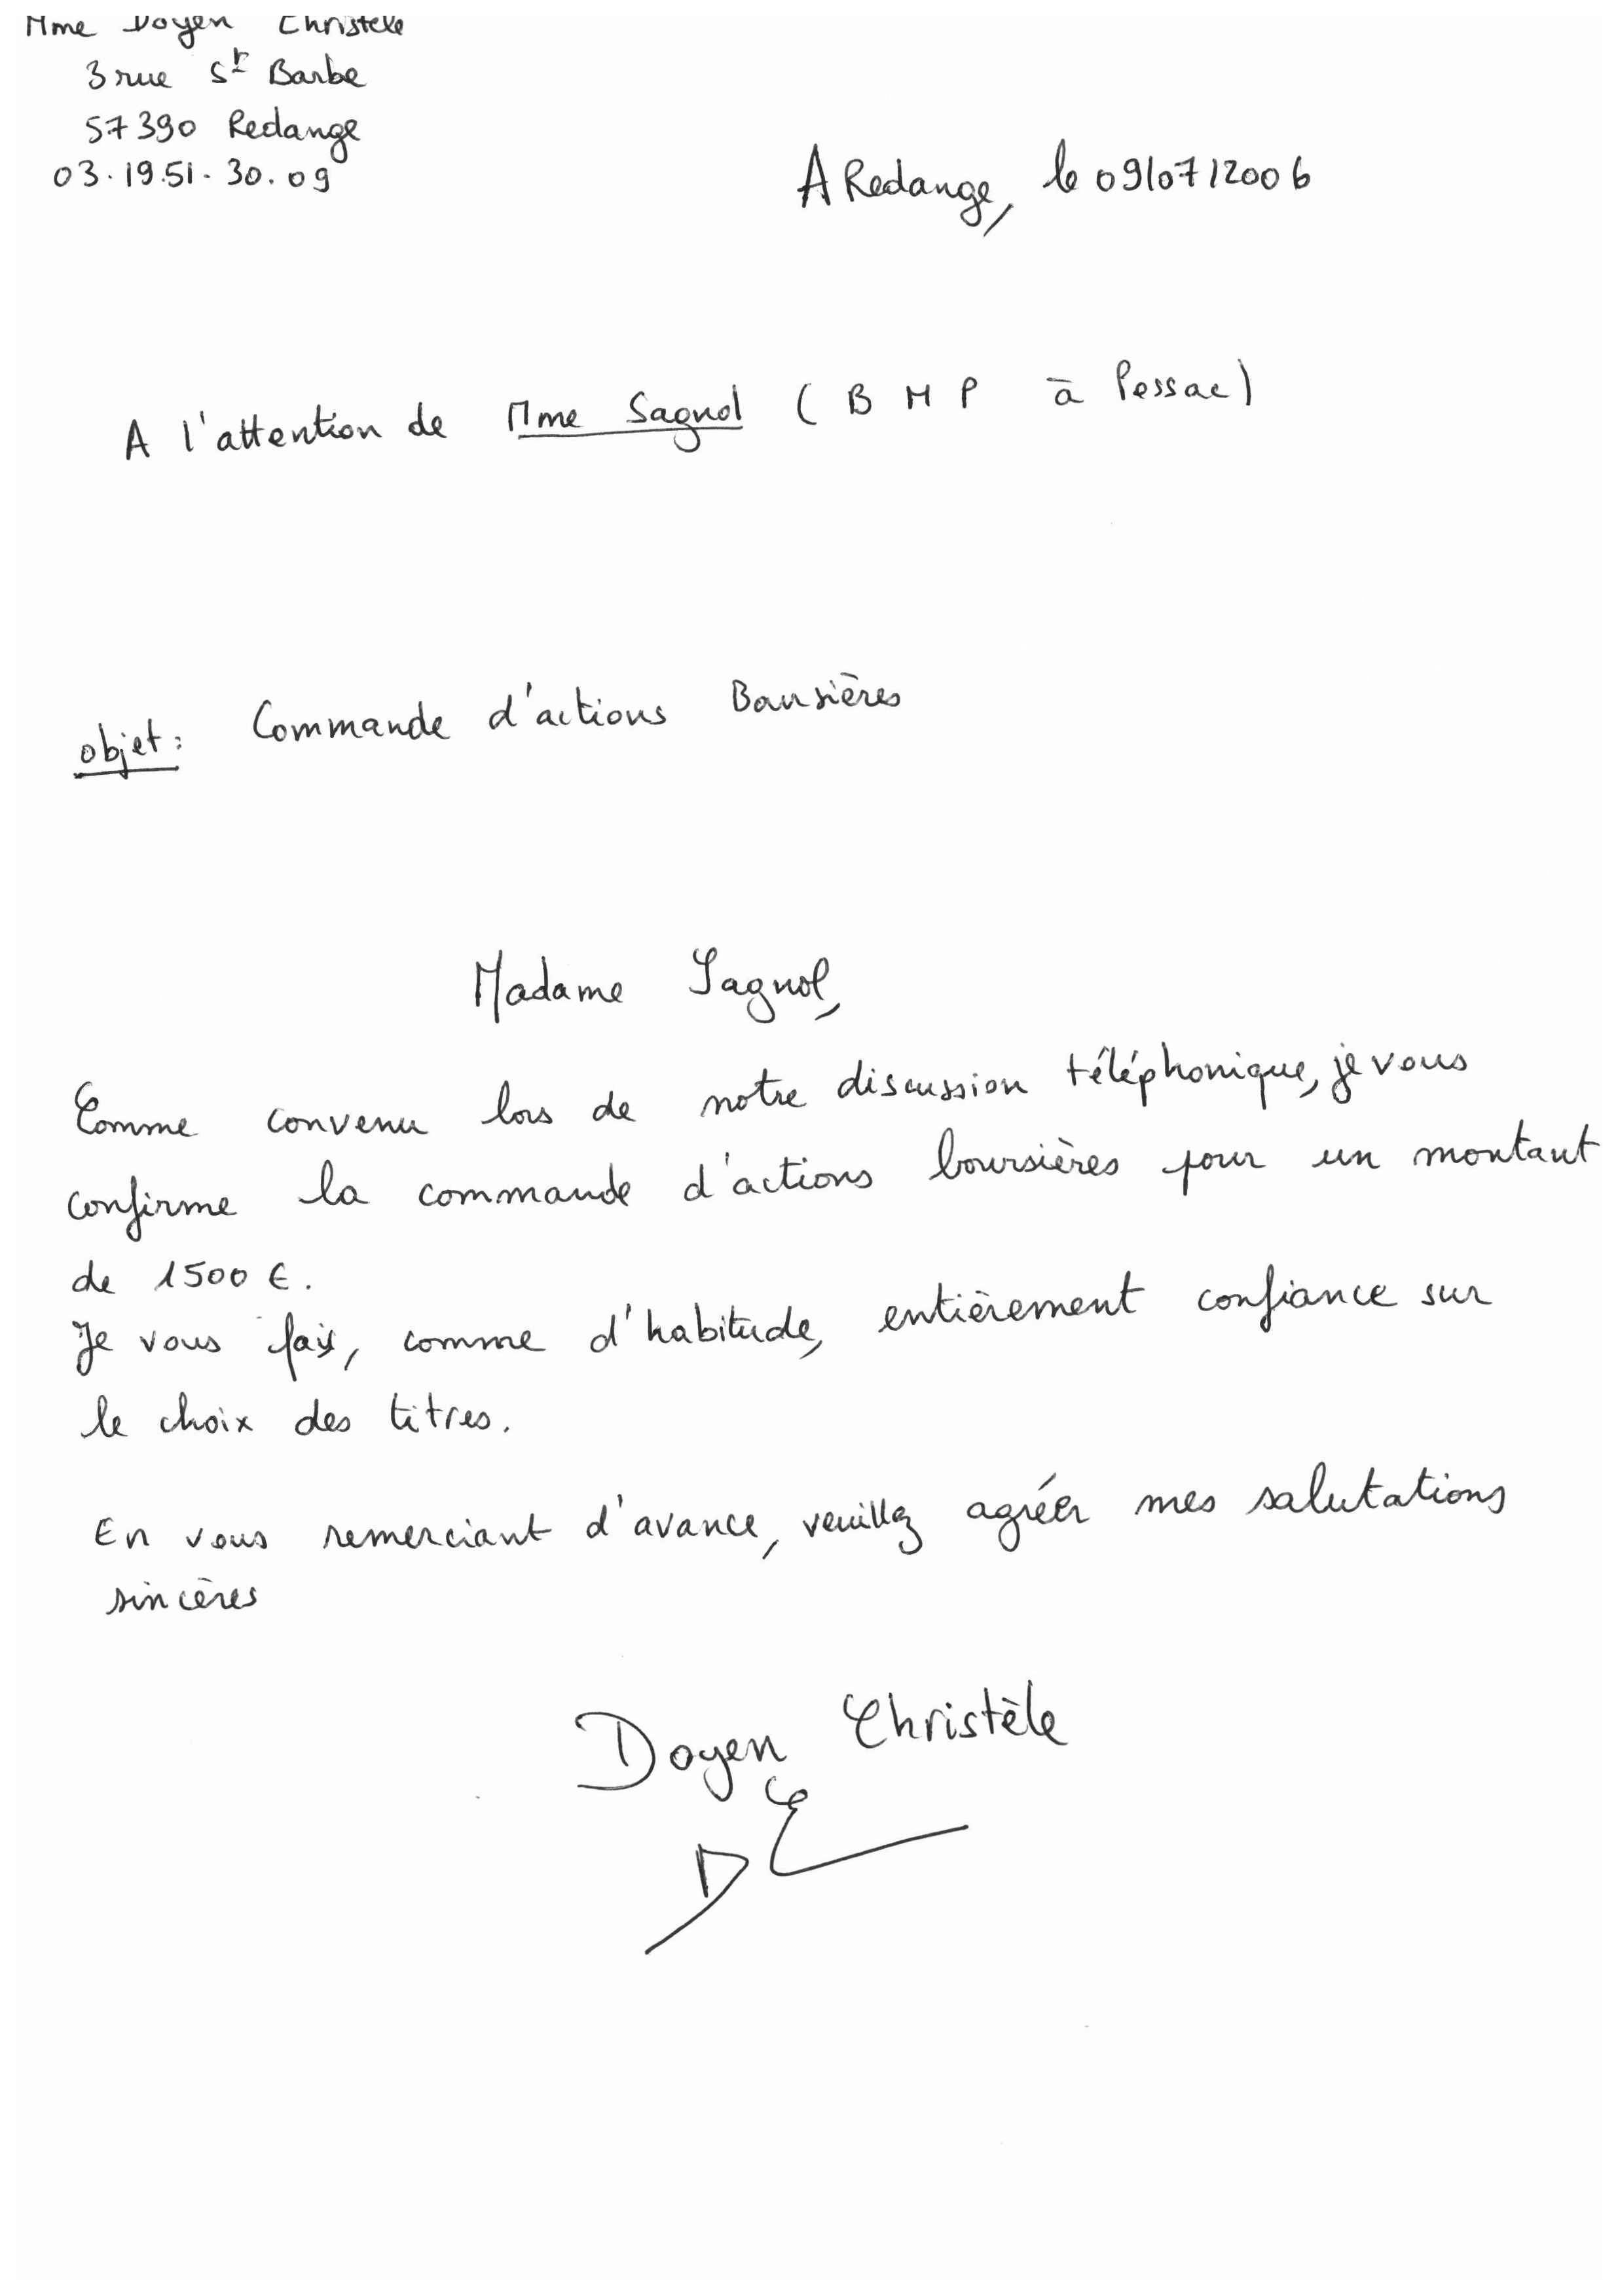 Mme Doyen Christèle
3 rue St Barbe
57390 Redange
03.19.51.30.09
A Redange, le 09/07/2006
A l'attention de Mme Sagnol (BMP à Pessac)
objet: Commande d'actions Boursières
Madame Sagnol,
Comme convenu lors de notre discussion téléphonique, je vous
confirme la commande d'actions boursières pour un montant
de 1500 €.
Je vous fais, comme d'habitude, entièrement confiance sur
le choix des titres.
En vous remerciant d'avance, veuillez agréer mes salutations
sincères
Doyen Christèle